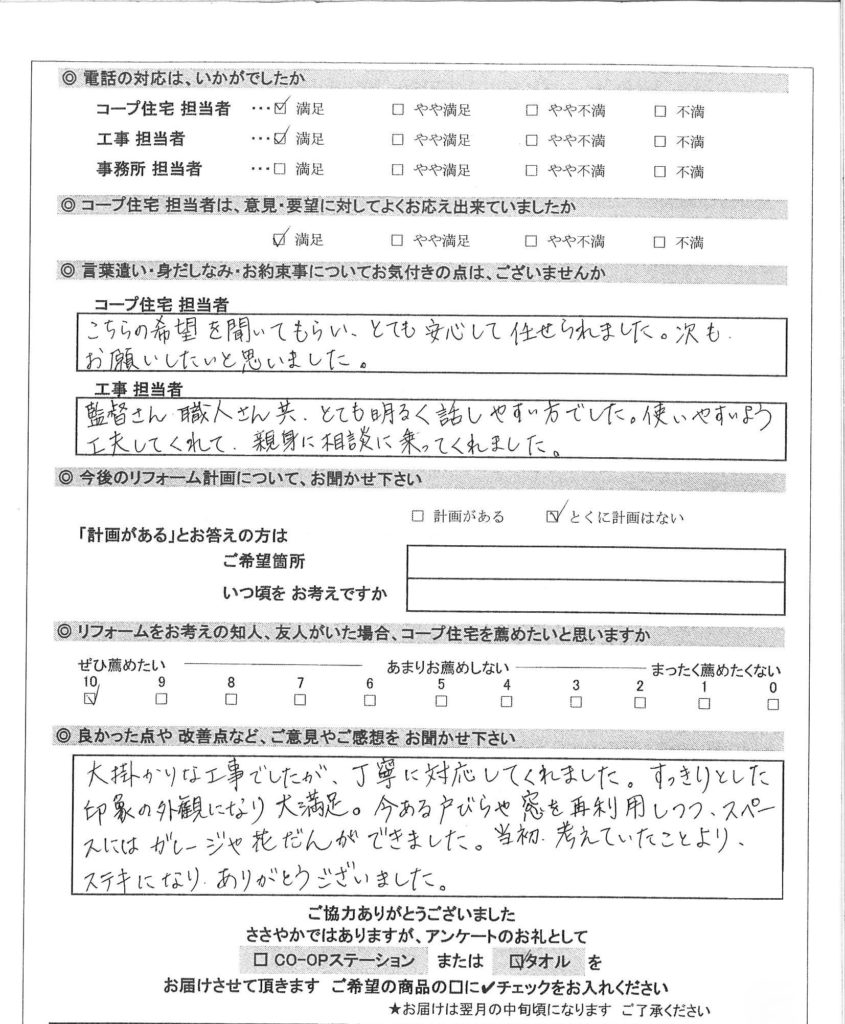 ◎ 電話の対応は、いかがでしたか
コープ住宅 担当者 ・・・☑ 満足 □ やや満足 □ やや不満 □ 不満
工事 担当者 ・・・☑ 満足 □ やや満足 □ やや不満 □ 不満
事務所 担当者 ・・・□ 満足 □ やや満足 □ やや不満 □ 不満
◎ コープ住宅 担当者は、意見・要望に対してよくお応え出来ていましたか
☑ 満足 □ やや満足 □ やや不満 □ 不満
◎ 言葉遣い・身だしなみ・お約束事についてお気付きの点は、ございませんか
コープ住宅 担当者
こちらの希望を聞いてもらい、とても安心して任せられました。次も
お願いしたいと思いました。
工事 担当者
監督さん 職人さん共、とても明るく話しやすい方でした。使いやすいよう
工夫してくれて、親身に相談に乗ってくれました。
◎ 今後のリフォーム計画について、お聞かせ下さい
□ 計画がある ☑ とくに計画はない
「計画がある」とお答えの方は
ご希望箇所
いつ頃を お考えですか
◎ リフォームをお考えの知人、友人がいた場合、コープ住宅を薦めたいと思いますか
ぜひ薦めたい あまりお薦めしない まったく薦めたくない
10 9 8 7 6 5 4 3 2 1 0
☑ □ □ □ □ □ □ □ □ □ □
◎ 良かった点や 改善点など、ご意見やご感想を お聞かせ下さい
大掛かりな工事でしたが、丁寧に対応してくれました。すっきりとした
印象の外観になり大満足。今ある戸びらや窓を再利用しつつ、スペー
スにはガレージや花だんができました。当初 考えていたことより、
ステキになり、ありがとうございました。
ご協力ありがとうございました
ささやかではありますが、アンケートのお礼として
□ CO-OPステーション または ☑タオル を
お届けさせて頂きます ご希望の商品の□に✔チェックをお入れください
★お届けは翌月の中旬頃になります ご了承ください